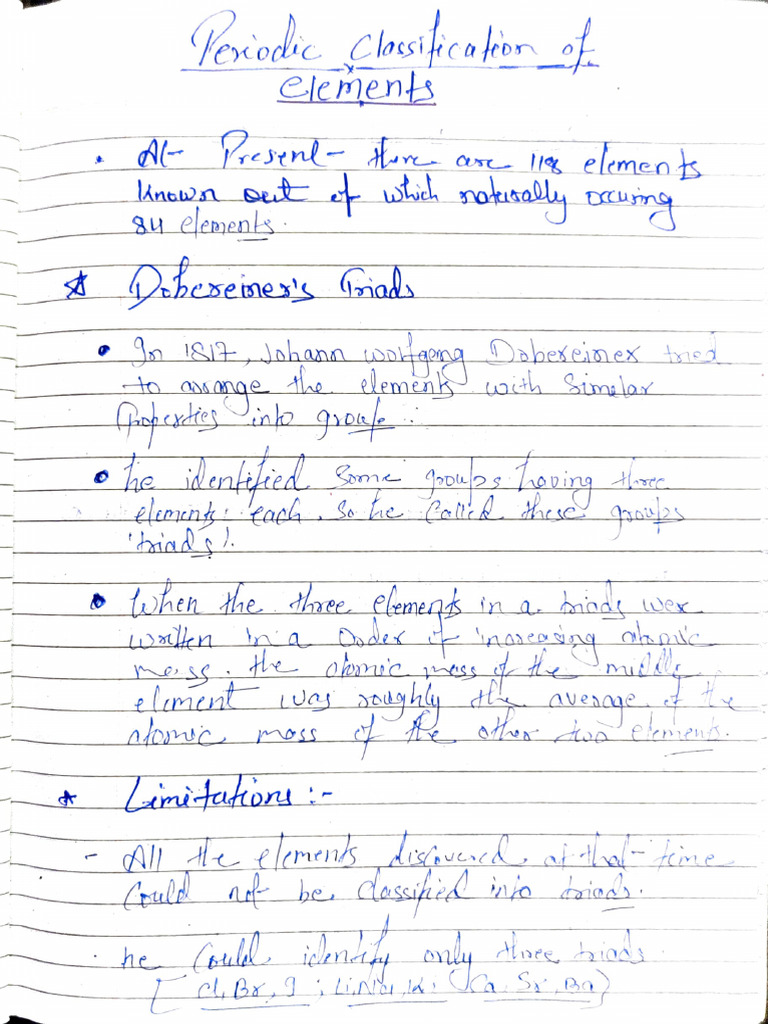 Periodic Classification of
elements
• At Present there are 118 elements
known out of which naturally occuring
84 elements.
☆ Dobereiner's Triads
• In 1817, Johann wolfgeng Dobereiner tried
to arrange the elements with Simelar
Properties into groups.
• he identified some groups having three
elements each. So he called these groups
'triads'.
• When the three elements in a triads wer
written in a Order of increasing atomic
mass. the atomic mass of the middle
element was roughly the average of the
atomic mass of the other two elements.
* Limitations :-
- All the elements discovered at that time
Could not be classified into triads.
. he Could identify only three triads.
[Cl, Br, I ; Li, Na, K; Ca, Sr, Ba)